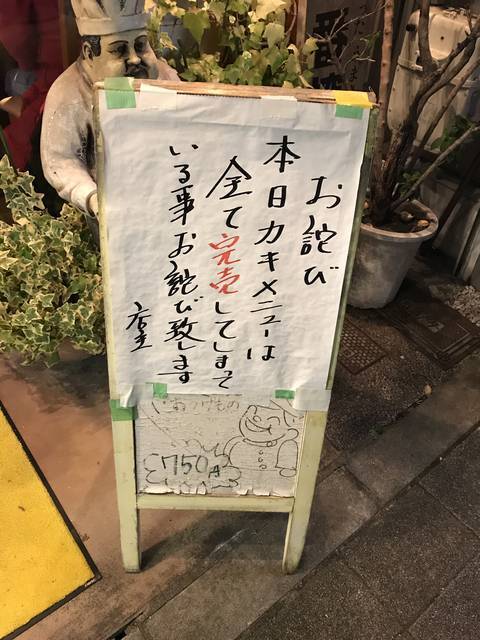 お詫び
本日カキメニューは
全て完売してしまって
いる事お詫び致します
店主
750円